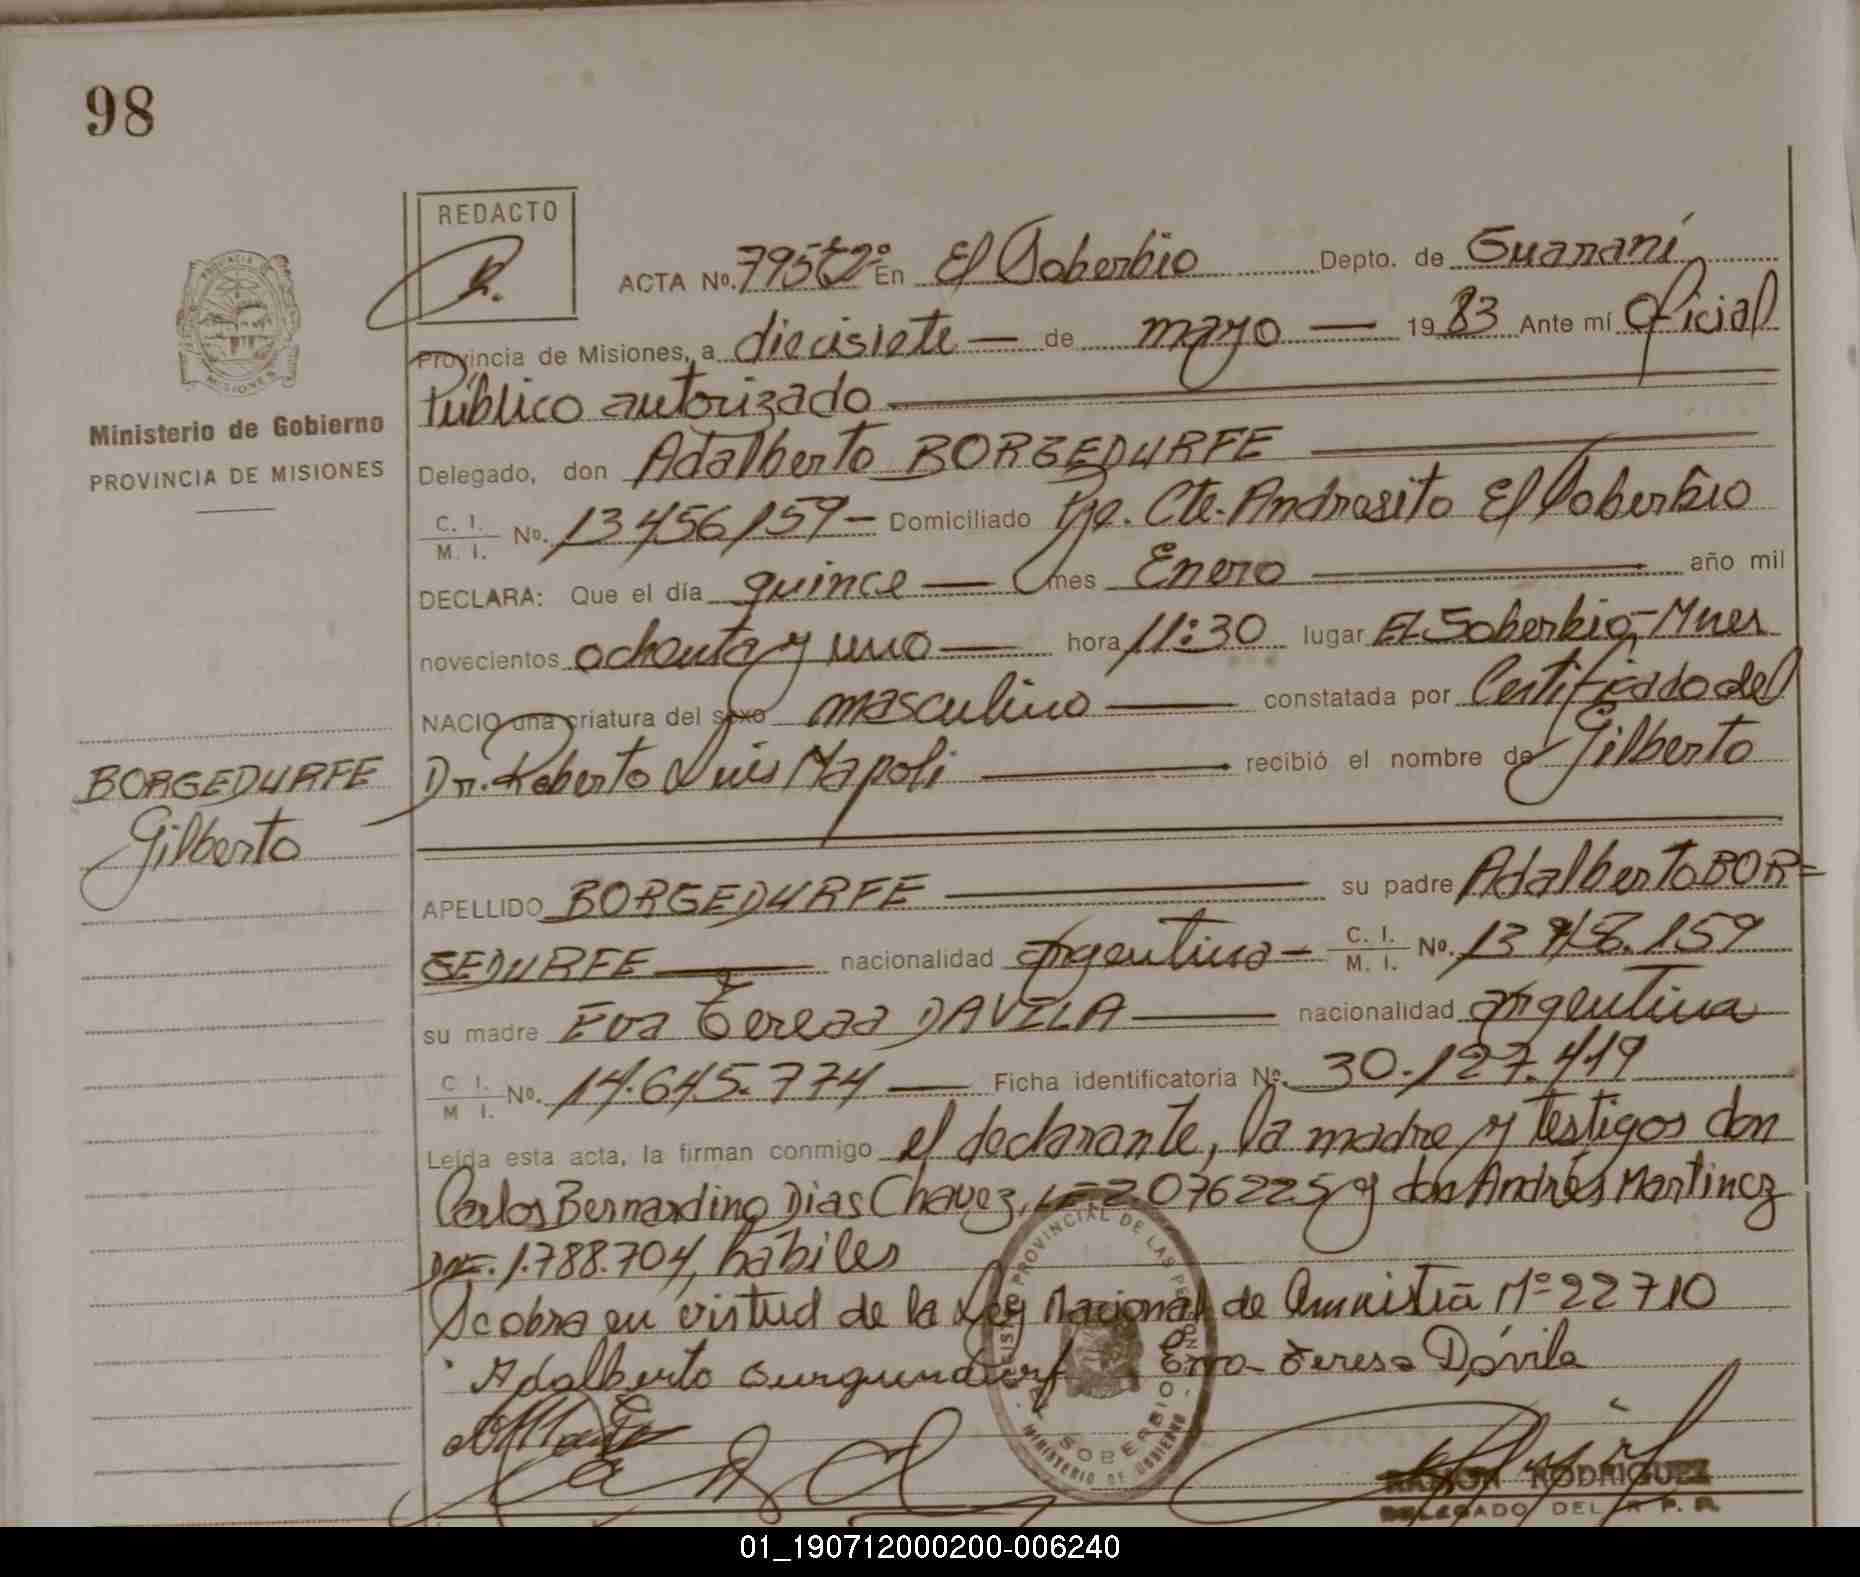 98
REDACTO
ACTA No. 795 t2º En El Soberbio Depto. de Guaraní
Provincia de Misiones, a diecisiete — de mayo — 19 83 Ante mí Oficial
Público autorizado
Ministerio de Gobierno
PROVINCIA DE MISIONES
Delegado, don Adalberto BORGEDURFE
C. I.
M. I. No. 13456159 - Domiciliado Pje. Cte. Andresito El Soberbio
DECLARA: Que el día quince — mes Enero — año mil
novecientos ochenta y uno — hora 11:30 lugar El Soberbio-Mnes
NACIO una criatura del sexo masculino — constatada por Certificado del
Dr. Roberto Luis Napoli — recibió el nombre de Gilberto
BORGEDURFE
Gilberto
APELLIDO BORGEDURFE — su padre Adalberto BOR=
GEDURFE — nacionalidad argentina - C. I. M. I. No. 159
su madre Eva Teresa DAVILA — nacionalidad argentina
C. I. M. I. No. 14.645.774 — Ficha identificatoria No. 30.127.419
Leída esta acta, la firman conmigo el declarante, la madre y testigos don
Carlos Bernardino Dias Chavez, LE 2076225 y don Andrés Martinez
DNI. 1.788.704, hábiles
Se obra en virtud de la Ley Nacional de Amnistia Nº 22710
Adalberto Teresa Dávila
PROVINCIAL DE LAS PERSONAS
SOBERBIO
MINISTERIO DE GOBIERNO
RAMON RODRIGUEZ
DELEGADO DEL R. P. P.
01_190712000200-006240